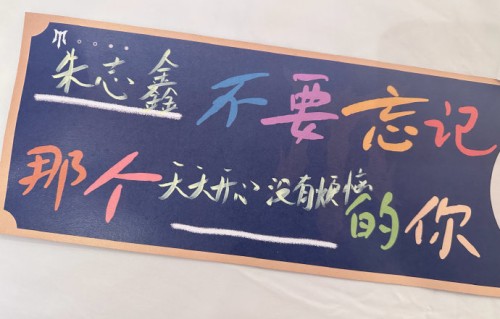 朱志鑫不要忘记
那个天天开心没有烦恼的你